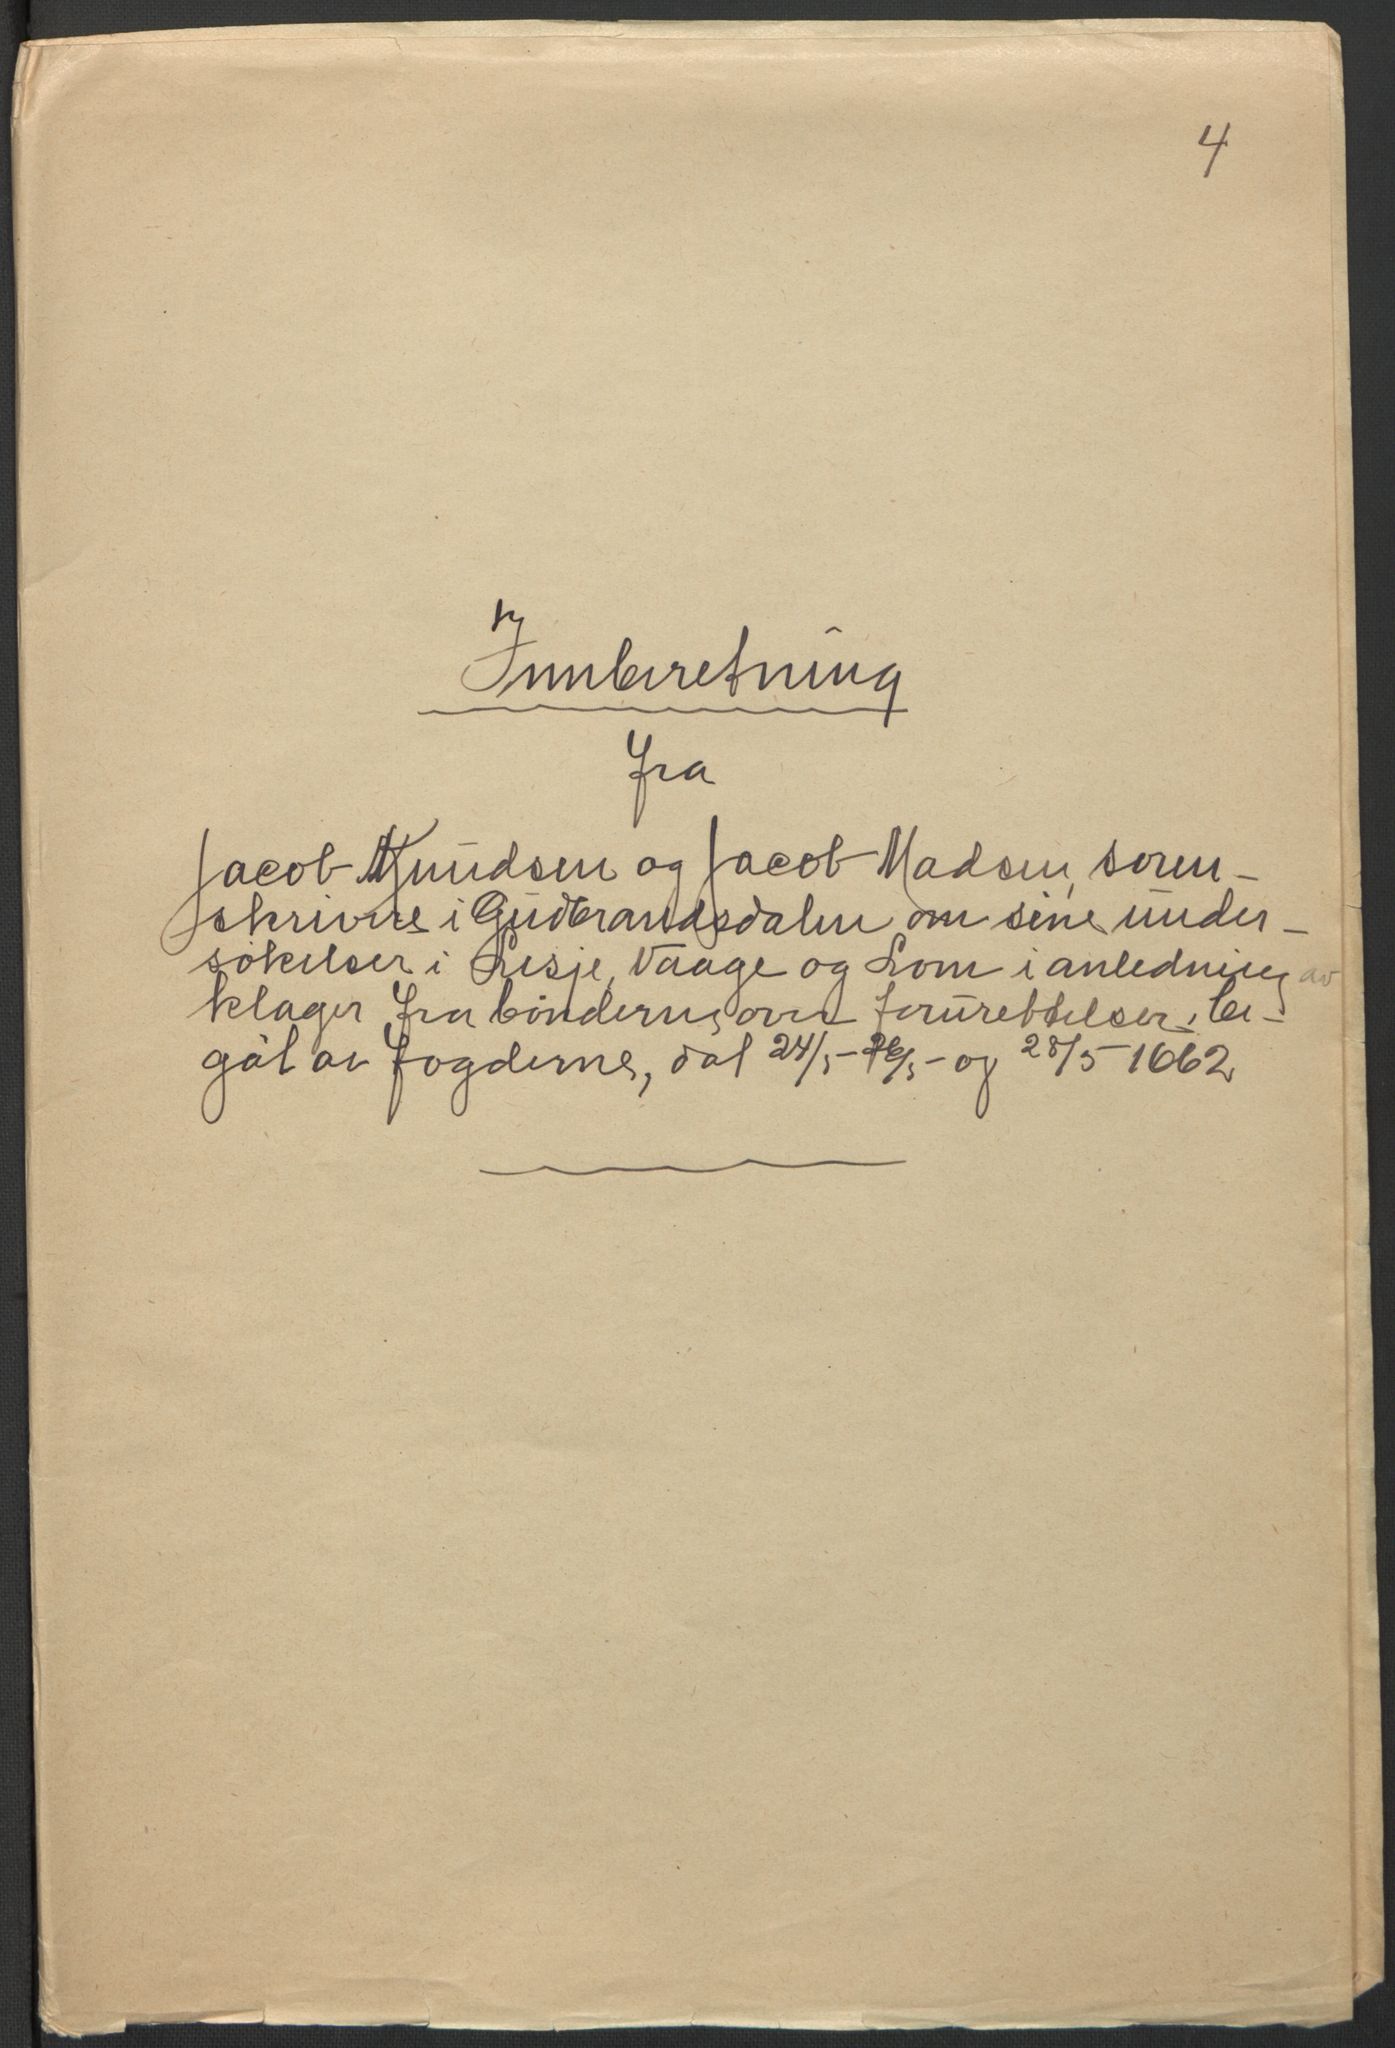 4
Innberetning
fra
Jacob Knudsen og Jacob Madsen, soren-
skrivere i Gudbrandsdalen om sine under-
søkelser i Lesje, Vaage og Lom i anledning av
klager fra bønderne over forurettelser, be-
gåt av fogderne, dat 24/5 - 26/5 - og 28/5 1662